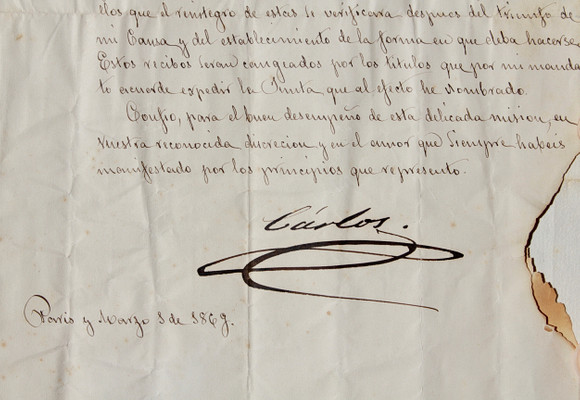 ellos que el reintegro de estas se verificara despues del triunfo de
mi Causa y del establecimiento de la forma en que deba hacerse.
Estos recibos seran cangeados por los titulos que por mi manda
to acuerde expedir la Junta, que al efecto he nombrado.
Confio, para el buen desempeño de esta delicada mision, en
vuestra reconocida discrecion y en el amor que siempre habeis
manifestado por los principios que represento.
Cárlos.
Paris y Marzo 1 de 1869.